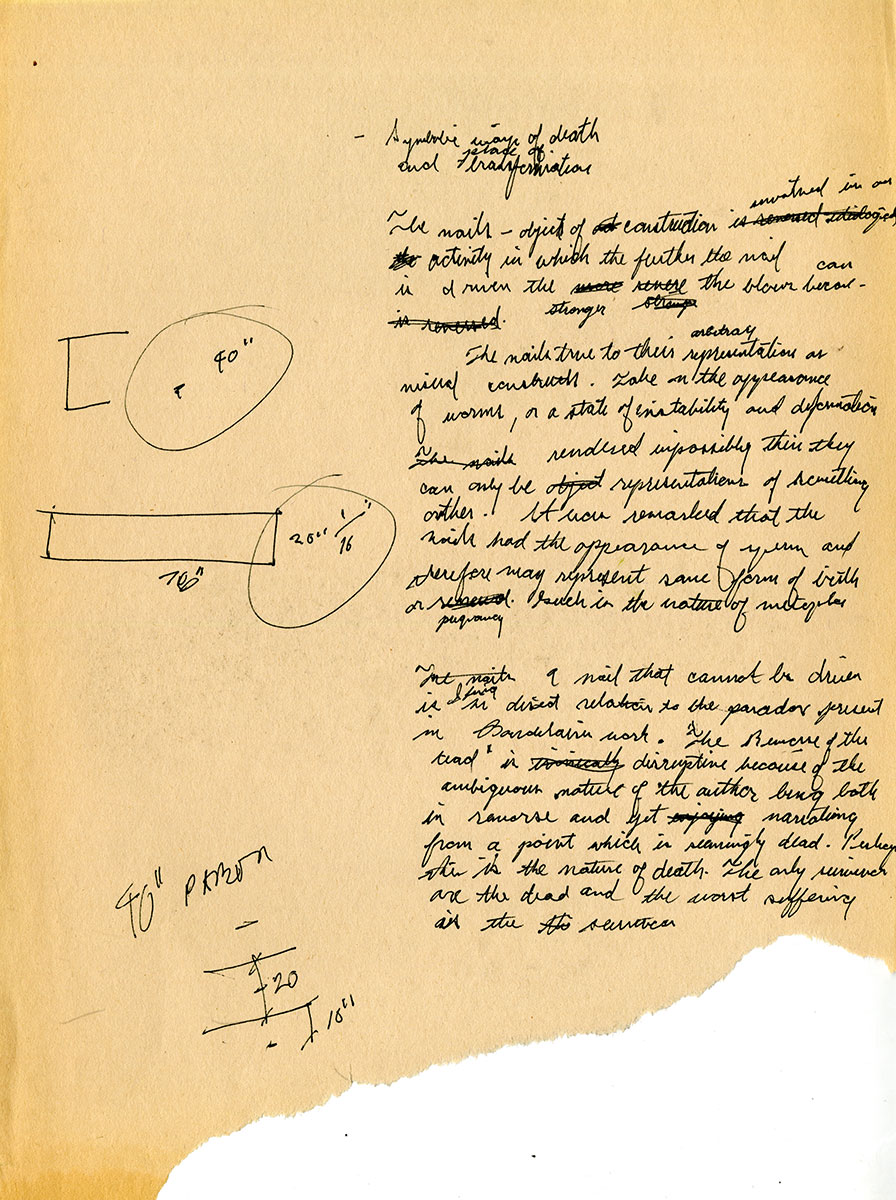 - Symbolic ways of death
state of
and transformation
involved in an
The nails - object of construction is renewed
activity in which the further the nail
can
is driven the more reverse the blows become -
is renewed. stronger
arbitrary
The nails true to their representation as
mixed constructs. Take on the appearance
of worms, or a state of instability and deformation
The nails rendered impossibly thin they
can only be object representations of something
other. It was remarked that the
nails had the appearance of sperm and
therefore may represent some form of birth
or renewal. Such is the nature of metaphor
pregnancy
The nails A nail that cannot be driven
is in direct relation to the paradox present
in work. "The Remorse of the
Dead" is ironically disruptive because of the
ambiguous nature of the author being both
in reverse and yet enjoying narrating
from a point which is seemingly dead. Perhaps
this is the nature of death. The only
are the dead and the worst suffering
is the
40"
20" 1/16"
70"
40"
20
10"